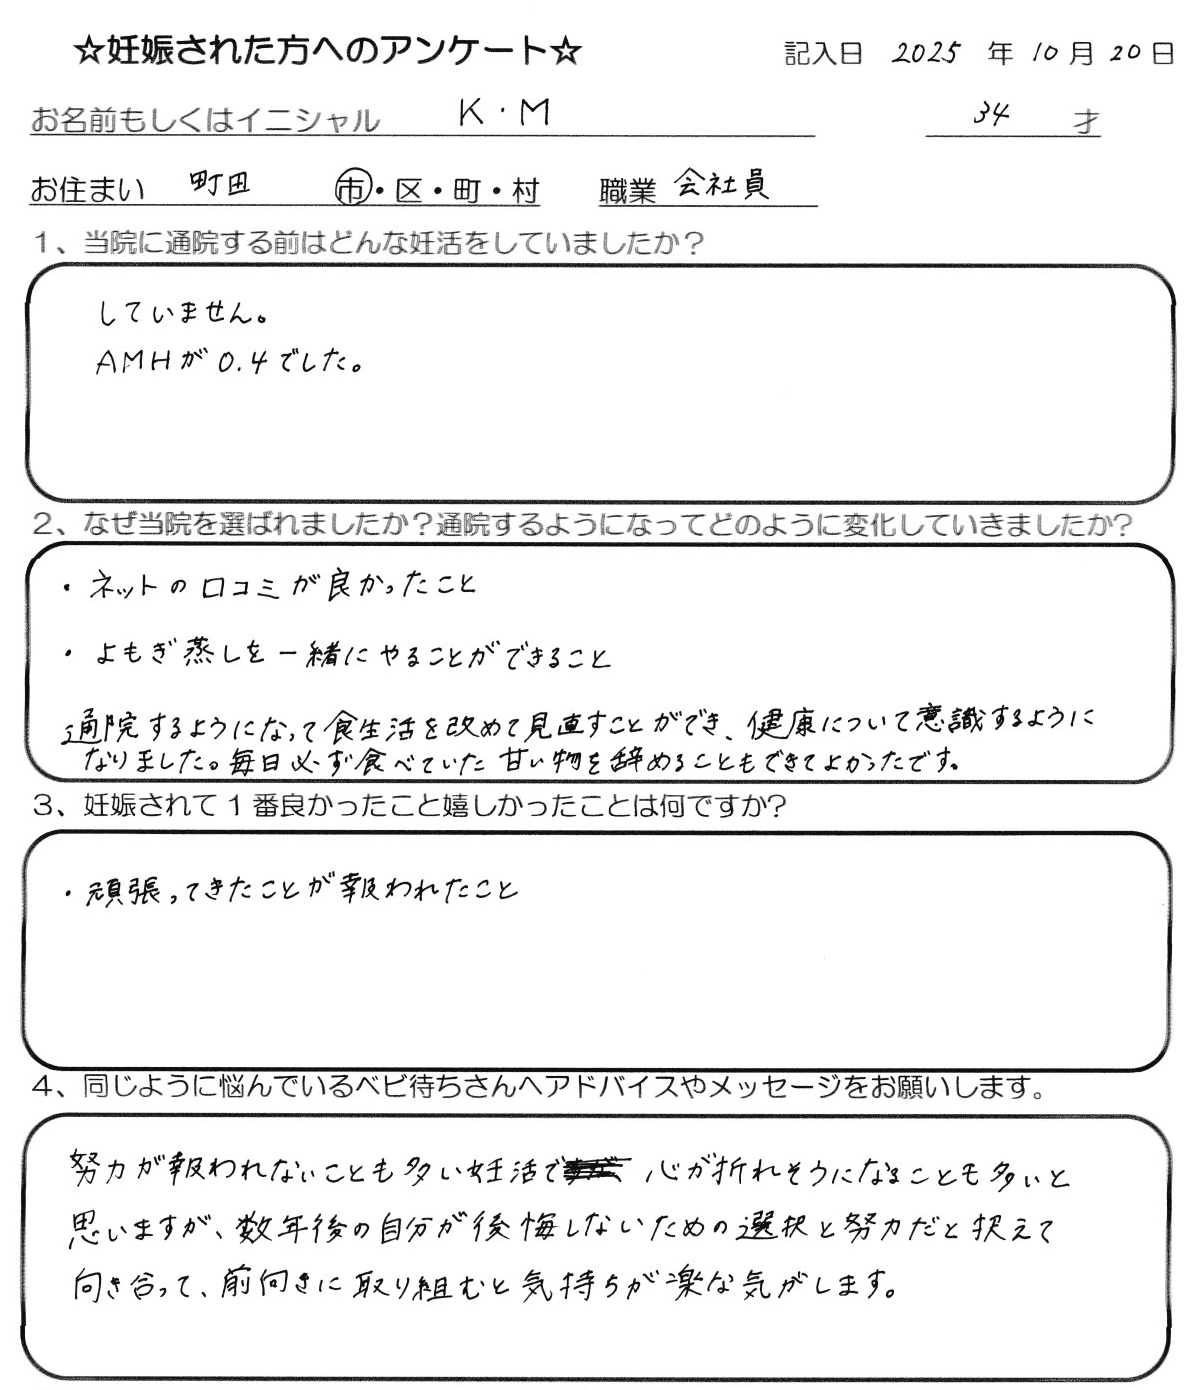 ☆妊娠された方へのアンケート☆ 記入日 2025 年 10 月 20 日
お名前もしくはイニシャル K・M 34 才
お住まい 町田 市・区・町・村 職業 会社員
1、当院に通院する前はどんな妊活をしていましたか？
していません。
AMHが0.4でした。
2、なぜ当院を選ばれましたか？通院するようになってどのように変化していきましたか？
・ネットの口コミが良かったこと
・よもぎ蒸しを一緒にやることができること
通院するようになって食生活を改めて見直すことができ、健康について意識するように
なりました。毎日必ず食べていた甘い物を辞めることもできてよかったです。
3、妊娠されて1番良かったこと嬉しかったことは何ですか？
・頑張ってきたことが報われたこと
4、同じように悩んでいるベビ待ちさんへアドバイスやメッセージをお願いします。
努力が報われないことも多い妊活で 心が折れそうになることも多いと
思いますが、数年後の自分が後悔しないための選択と努力だと捉えて
向き合って、前向きに取り組むと気持ちが楽な気がします。